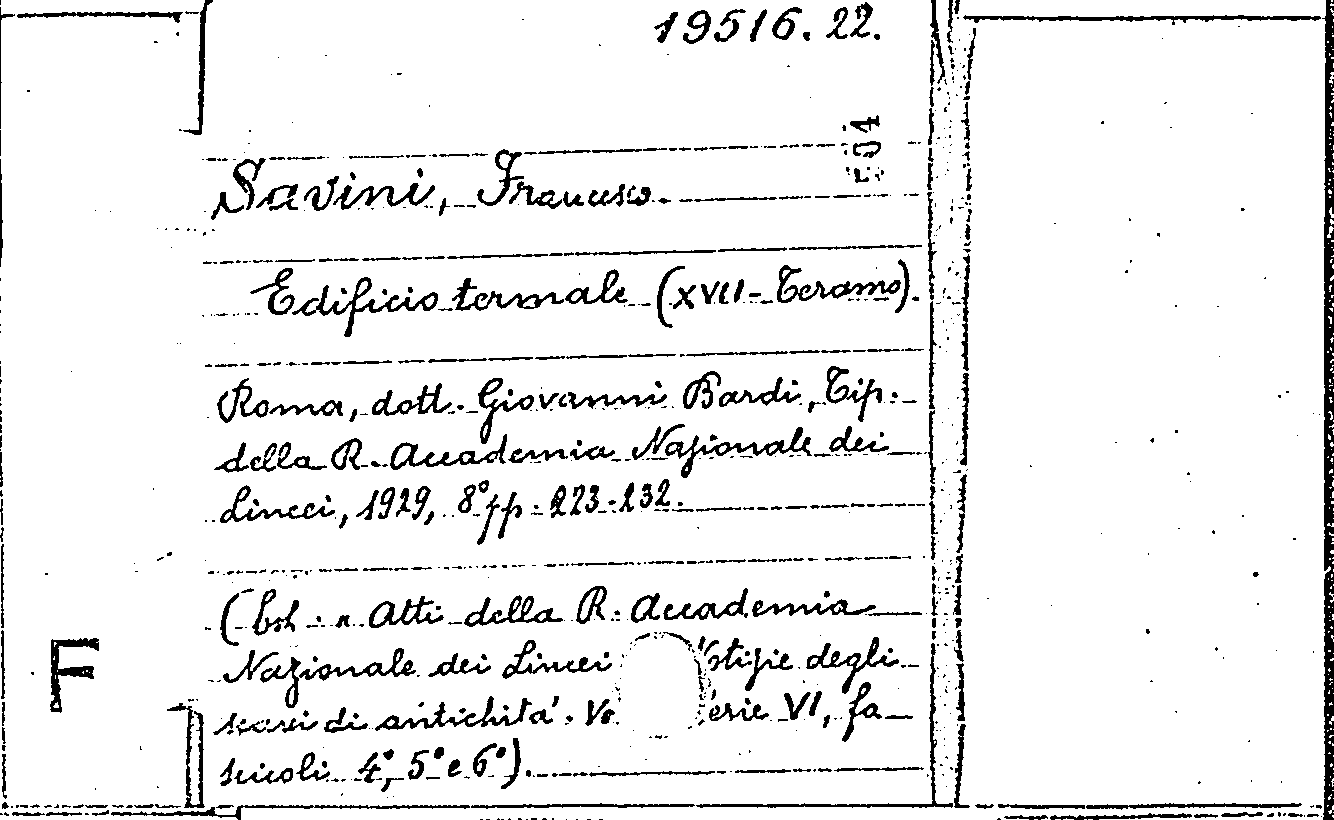 19516. 22.
504
Savini, Francesco.
Edificio termale (XVII - Teramo).
Roma, dott. Giovanni Bardi, Tip.
della R. Accademia Nazionale dei
Lincei, 1929, 8° pp. 223-232.
(Est. " Atti della R. Accademia
Nazionale dei Lincei Notizie degli
scavi di antichità. Vo erie VI, fa
scicoli 4°, 5° e 6°).
F